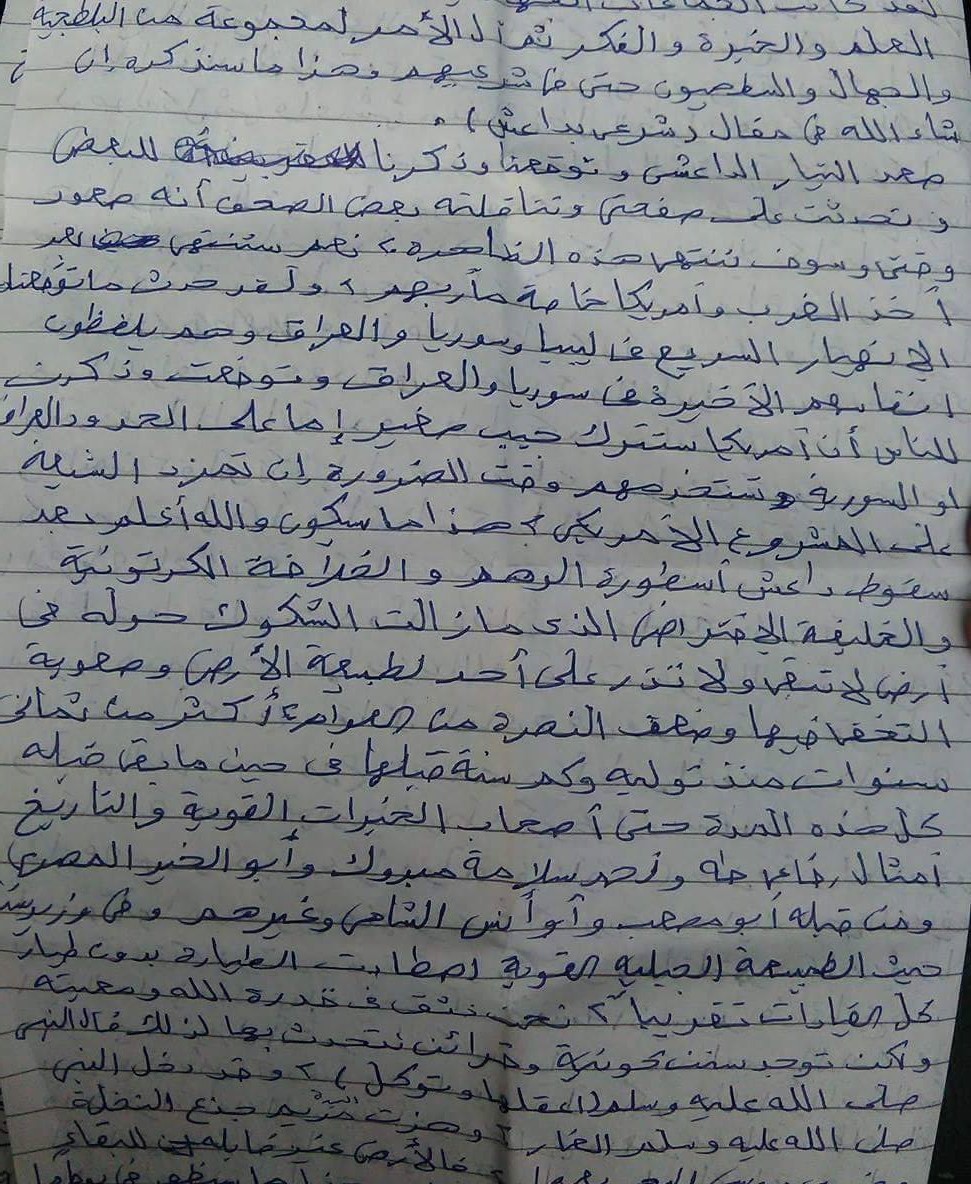 لقد كانت الجماعات
العلم والخبرة والفكر ثم آل الأمر لمجموعة من البلطجية
والجهال والسطحيون حتى في شرعيهم وهذا ما سنذكره إن
شاء الله في مقال (شرعي بداعش) .
صعد التيار الداعشي وتوقعنا وذكرنا للبعض
وتحدثت على صفحتي وتناقلته بعض الصحف أنه صعود
وقتي وسوف تنتهي هذه الظاهرة ، نعم ستنتهي بعد
أخذ الغرب وأمريكا خاصة مآربهم ، ولقد حدث ما توقعناه
الإنهيار السريع في ليبيا وسوريا والعراق وهم يلفظون
انفاسهم الأخيرة في سوريا والعراق وتوقعت وذكرت
للناس أن أمريكا ستترك جيب صغير إما على الحدود العراقية
او السورية وتستخدمهم وقت الضرورة إن تمرد الشيعة
على المشروع الأمريكي ، هذا ما سيكون والله أعلم بعد
سقوط داعش أسطورة الوهم و الكرتونية
والخليفة الإفتراضي الذى مازالت الشكوك حوله في
أرض لا تبقي ولا تذر على أحد لطبيعة الأرض وصعوبة
التخفي فيها وضعف النصرة من العوام أكثر من ثماني
سنوات منذ توليه وكم سنة قبلها في حين ما بقي قبله
كل هذه المدة حتى أصحاب الخبرات القوية والتاريخ
أمثال رفاعي طه و سلامة مبروك وأبو الخير المصري
ومن قبله أبو مصعب وأبو أنس الشامي وغيرهم وفي وزيرستان
حيث الطبيعة الجبلية القوية اصطادت الطيارة بدون طيار
كل القيادات تقريباً ، نحن نثق في قدرة الله ومعيته
ولكن توجد سنن كونية وقرائن نتحدث بها لذلك قال النبي
صلى الله عليه وسلم (اعقلها وتوكل) ، وقد دخل النبي
صلى الله عليه وسلم الغار وهزت مريم جذع النخلة
فالأرض غير قابلة للبقاء